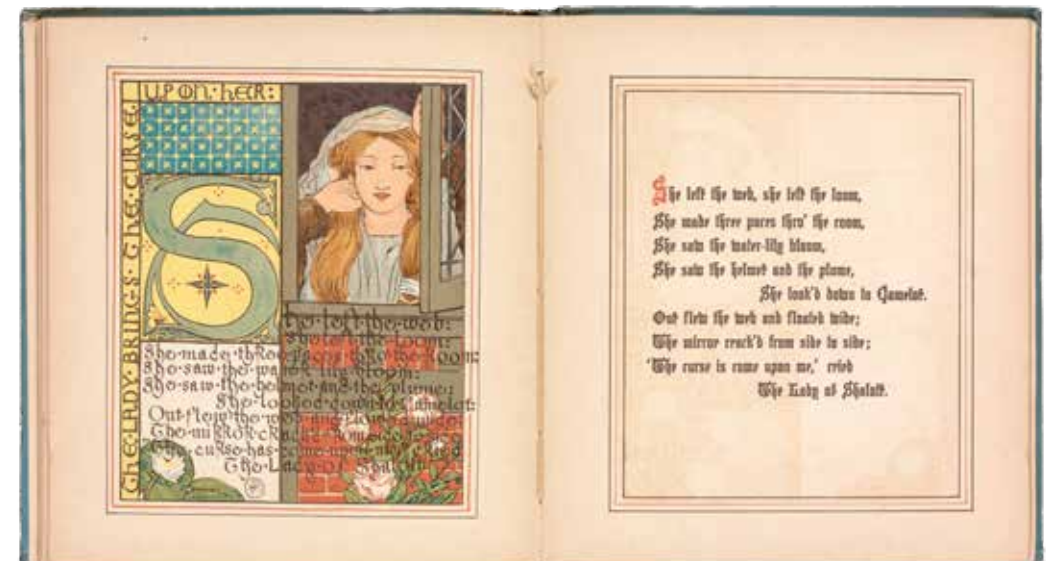 THE·LADY·BRINGS·THE·CURSE·
UPON·HER:
She·left·the·web:
She·left·the·loom:
She·made·three·paces·thro·the·room:
She·saw·the·water·lily·bloom:
She·saw·the·helmet·and·the·plume:
She·looked·down·to·Camelot:
Out·flew·the·web·and·floated·wide:
The·mirror·cracked·from·side·to
The·curse·has·come·upon·me·cried
The·Lady·of·Shalott
She left the web, she left the loom,
She made three paces thro' the room,
She saw the water-lily bloom,
She saw the helmet and the plume,
She look'd down to Camelot.
Out flew the web and floated wide;
The mirror crack'd from side to side;
'The curse is come upon me,' cried
The Lady of Shalott.